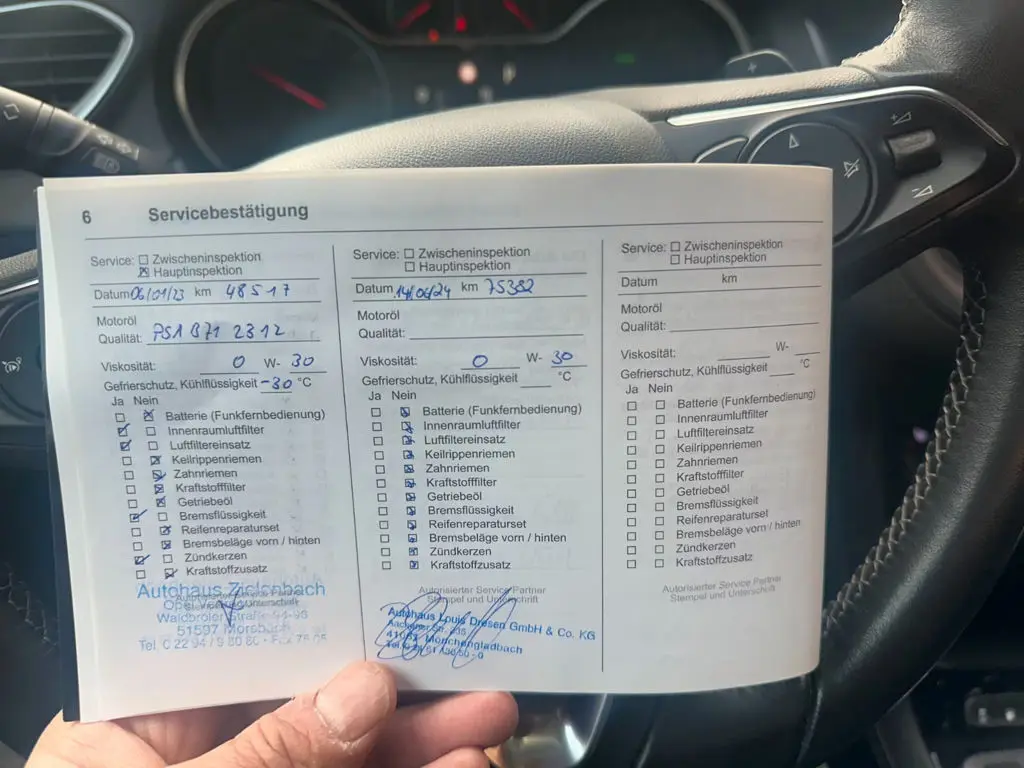 6 Servicebestätigung
Service: Zwischeninspektion
Hauptinspektion
Datum 06/01/23 km 48517
Motoröl
Qualität: PSA B71 2312
Viskosität: 0 W- 30
Gefrierschutz, Kühlflüssigkeit -30 °C
Ja Nein
Batterie (Funkfernbedienung)
Innenraumluftfilter
Luftfiltereinsatz
Keilrippenriemen
Zahnriemen
Kraftstofffilter
Getriebeöl
Bremsflüssigkeit
Reifenreparaturset
Bremsbeläge vorn / hinten
Zündkerzen
Kraftstoffzusatz
Autohaus Zielenbach
51597 Morsbach
Service: Zwischeninspektion
Hauptinspektion
Datum 14/06/24 km 75382
Motoröl
Qualität:
Viskosität: 0 W- 30
Gefrierschutz, Kühlflüssigkeit °C
Ja Nein
Batterie (Funkfernbedienung)
Innenraumluftfilter
Luftfiltereinsatz
Keilrippenriemen
Zahnriemen
Kraftstofffilter
Getriebeöl
Bremsflüssigkeit
Reifenreparaturset
Bremsbeläge vorn / hinten
Zündkerzen
Kraftstoffzusatz
Autorisierter Service Partner
Stempel und Unterschrift
Autohaus Louis Dresen GmbH & Co. KG
Mönchengladbach
Service: Zwischeninspektion
Hauptinspektion
Datum km
Motoröl
Qualität:
Viskosität: W-
Gefrierschutz, Kühlflüssigkeit °C
Ja Nein
Batterie (Funkfernbedienung)
Innenraumluftfilter
Luftfiltereinsatz
Keilrippenriemen
Zahnriemen
Kraftstofffilter
Getriebeöl
Bremsflüssigkeit
Reifenreparaturset
Bremsbeläge vorn / hinten
Zündkerzen
Kraftstoffzusatz
Autorisierter Service Partner
Stempel und Unterschrift